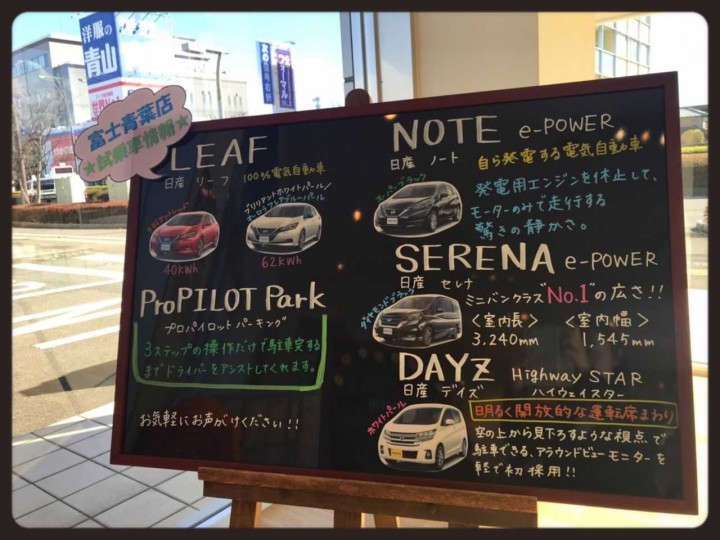 洋服の
青山
富士青葉店
★試乗車情報★
LEAF
日産 リーフ 100%電気自動車
ブリリアントホワイトパール/
40kWh
62kWh
ProPILOT Park
プロパイロット パーキング
3ステップの操作だけで駐車完了する
までドライバーをアシストしてくれます。
お気軽にお声がけください!!
NOTE e-POWER
日産 ノート 自ら発電する電気自動車
スーパーブラック
発電用エンジンを休止して、
モーターのみで走行する
驚きの静かさ。
SERENA e-POWER
日産 セレナ
ダイヤモンドブラック
ミニバンクラス"No.1"の広さ!!
〈室内長〉 〈室内幅〉
3,240mm 1,545mm
DAYZ Highway STAR
日産 デイズ ハイウェイスター
ホワイトパール
明るく開放的な運転席まわり
空の上から見下ろすような視点で
駐車できる、アラウンドビューモニターを
軽で初採用!!